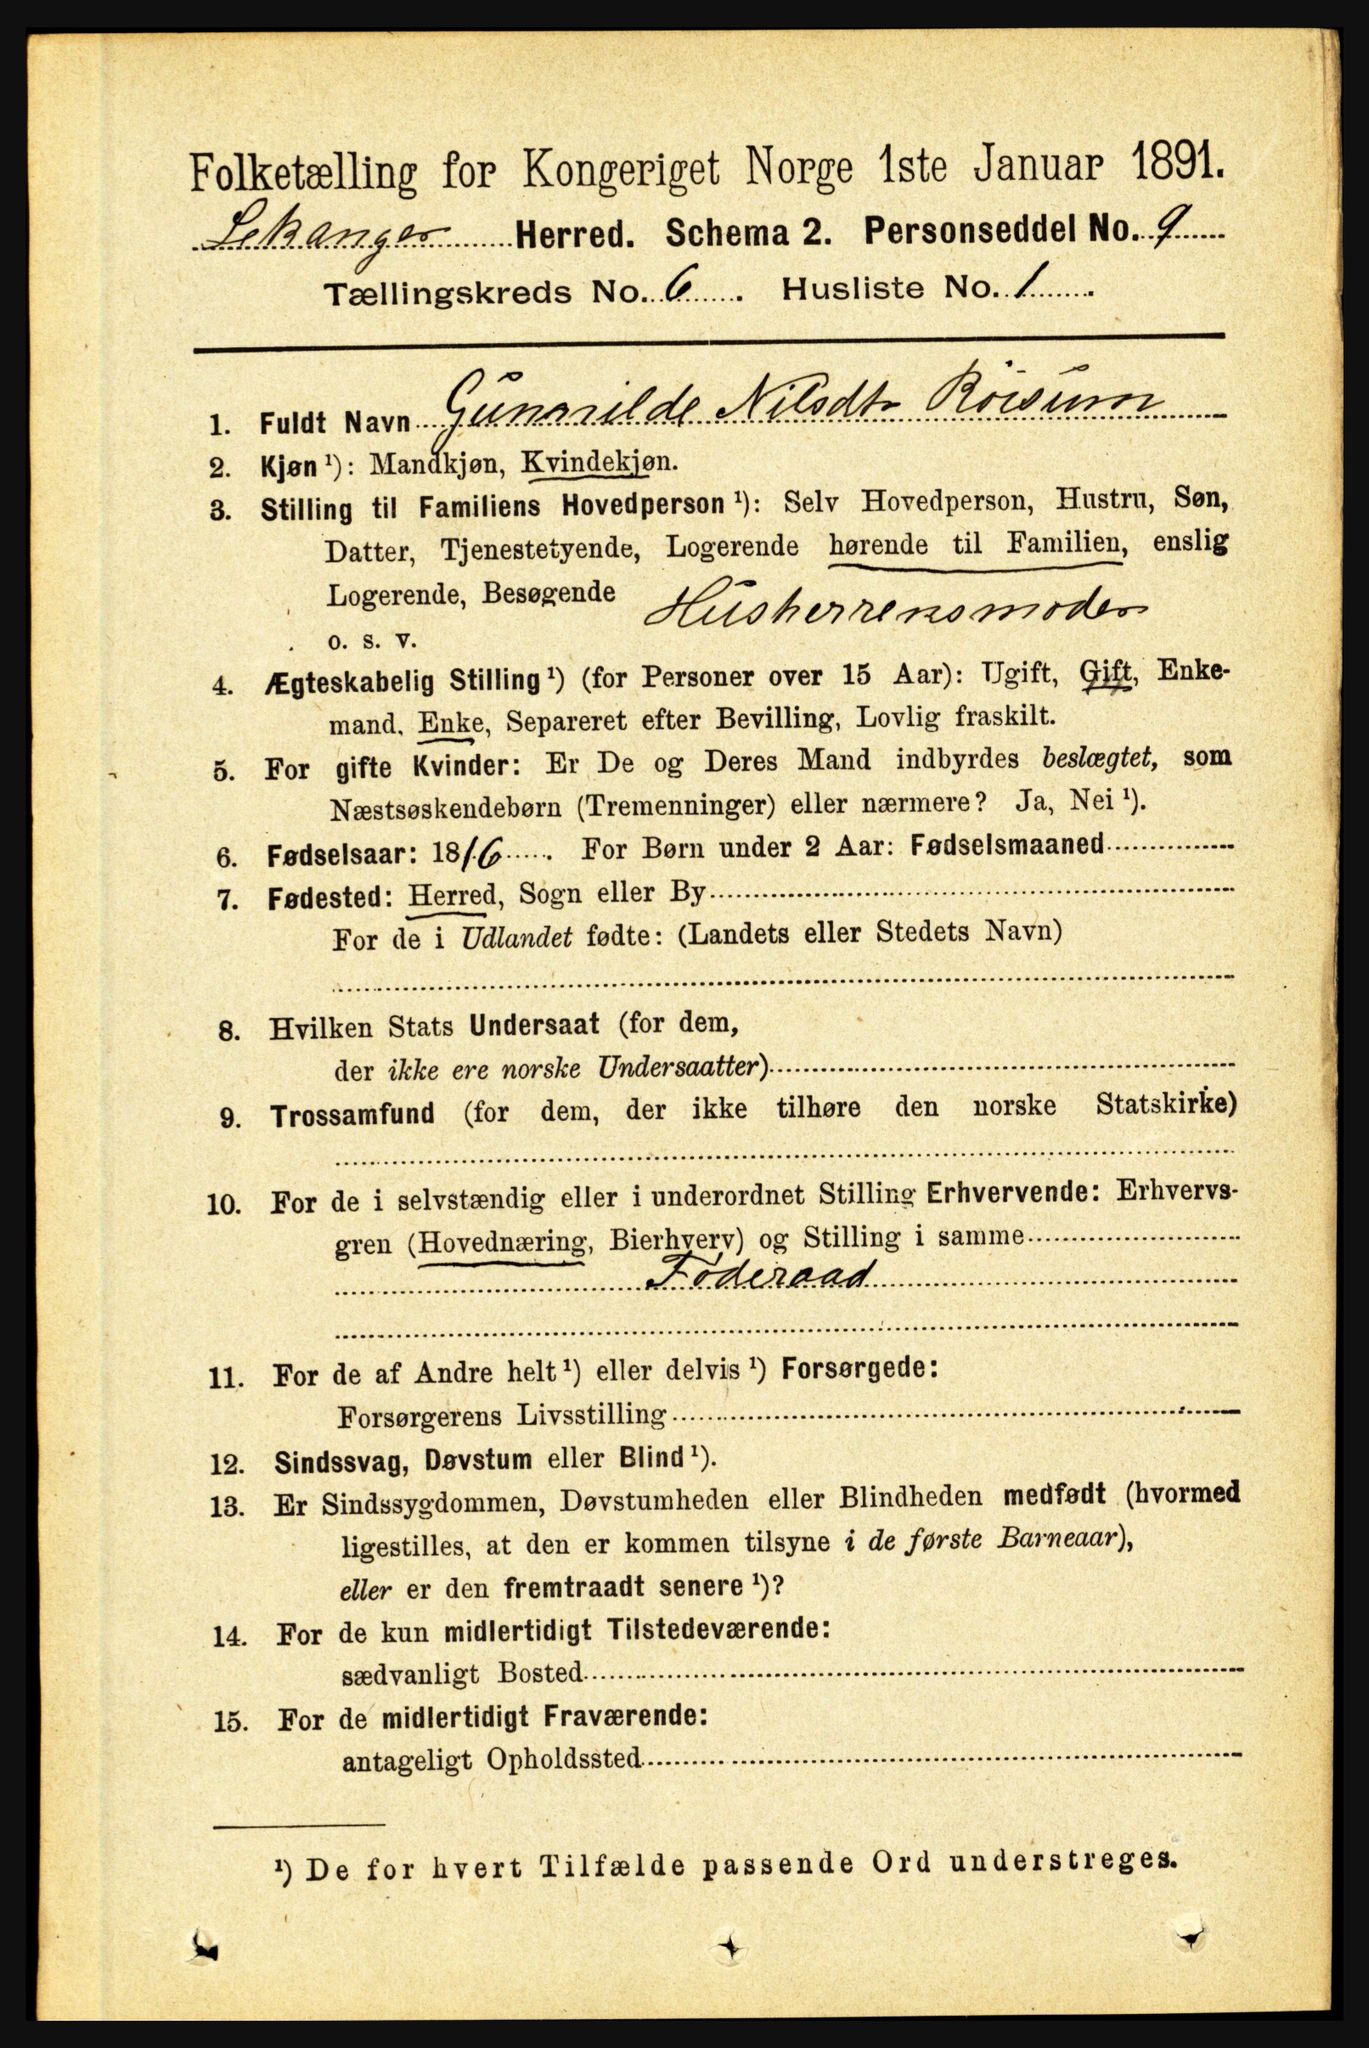 Folketælling for Kongeriget Norge 1ste Januar 1891.
Lekanger Herred. Schema 2. Personseddel No. 9
Tællingskreds No. 6. Husliste No. 1.
1. Fuldt Navn Gunnilde Nilsdtr Röisum
2. Kjøn ¹): Mandkjøn, Kvindekjøn.
3. Stilling til Familiens Hovedperson ¹): Selv Hovedperson, Hustru, Søn,
Datter, Tjenestetyende, Logerende hørende til Familien, enslig
Logerende, Besøgende Husherrensmoder
o. s. v.
4. Ægteskabelig Stilling ¹) (for Personer over 15 Aar): Ugift, Gift, Enke-
mand, Enke, Separeret efter Bevilling, Lovlig fraskilt.
5. For gifte Kvinder: Er De og Deres Mand indbyrdes beslægtet, som
Næstsøskendebørn (Tremenninger) eller nærmere? Ja, Nei ¹).
6. Fødselsaar: 1816. For Børn under 2 Aar: Fødselsmaaned
7. Fødested: Herred, Sogn eller By
For de i Udlandet fødte: (Landets eller Stedets Navn)
8. Hvilken Stats Undersaat (for dem,
der ikke ere norske Undersaatter)
9. Trossamfund (for dem, der ikke tilhøre den norske Statskirke)
10. For de i selvstændig eller i underordnet Stilling Erhvervende: Erhvervs-
gren (Hovednæring, Bierhverv) og Stilling i samme
Föderaad
11. For de af Andre helt ¹) eller delvis ¹) Forsørgede:
Forsørgerens Livsstilling
12. Sindssvag, Døvstum eller Blind ¹).
13. Er Sindssygdommen, Døvstumheden eller Blindheden medfødt (hvormed
ligestilles, at den er kommen tilsyne i de første Barneaar),
eller er den fremtraadt senere ¹)?
14. For de kun midlertidigt Tilstedeværende:
sædvanligt Bosted
15. For de midlertidigt Fraværende:
antageligt Opholdssted
¹) De for hvert Tilfælde passende Ord understreges.